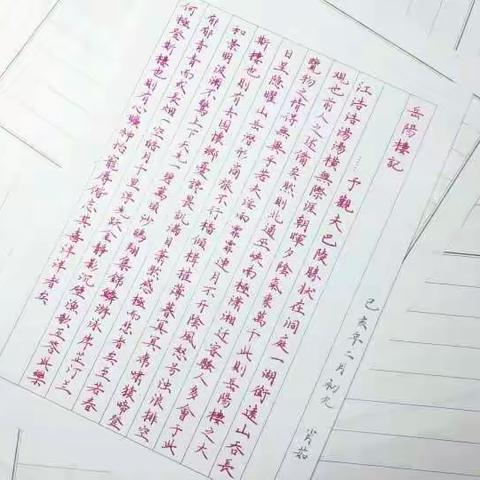 岳陽樓記
……予觀夫巴陵勝狀在洞庭一湖銜遠山吞長
江浩浩湯湯橫無際涯朝暉夕陰氣象萬千此則岳陽樓之大
觀也前人之述備矣然則北通巫峽南極瀟湘遷客騷人多會于此
覽物之情得無異乎若夫霪雨霏霏連月不開陰風怒号浊浪排空
日星隱曜山岳潛形商旅不行檣傾楫摧薄暮冥冥虎嘯猿啼登
斯樓也則有去國懷鄉憂讒畏譏滿目蕭然感極而悲者矣至若春
和景明波瀾不驚上下天光一碧萬頃沙鷗翔集錦鱗游泳岸芷汀兰
郁郁青青而或長烟一空皓月千里浮光跃金静影沉璧漁歌互答此樂
何極登斯樓也則有心曠神怡寵辱偕忘喜洋洋者矣
己亥年二月初九 肖茹